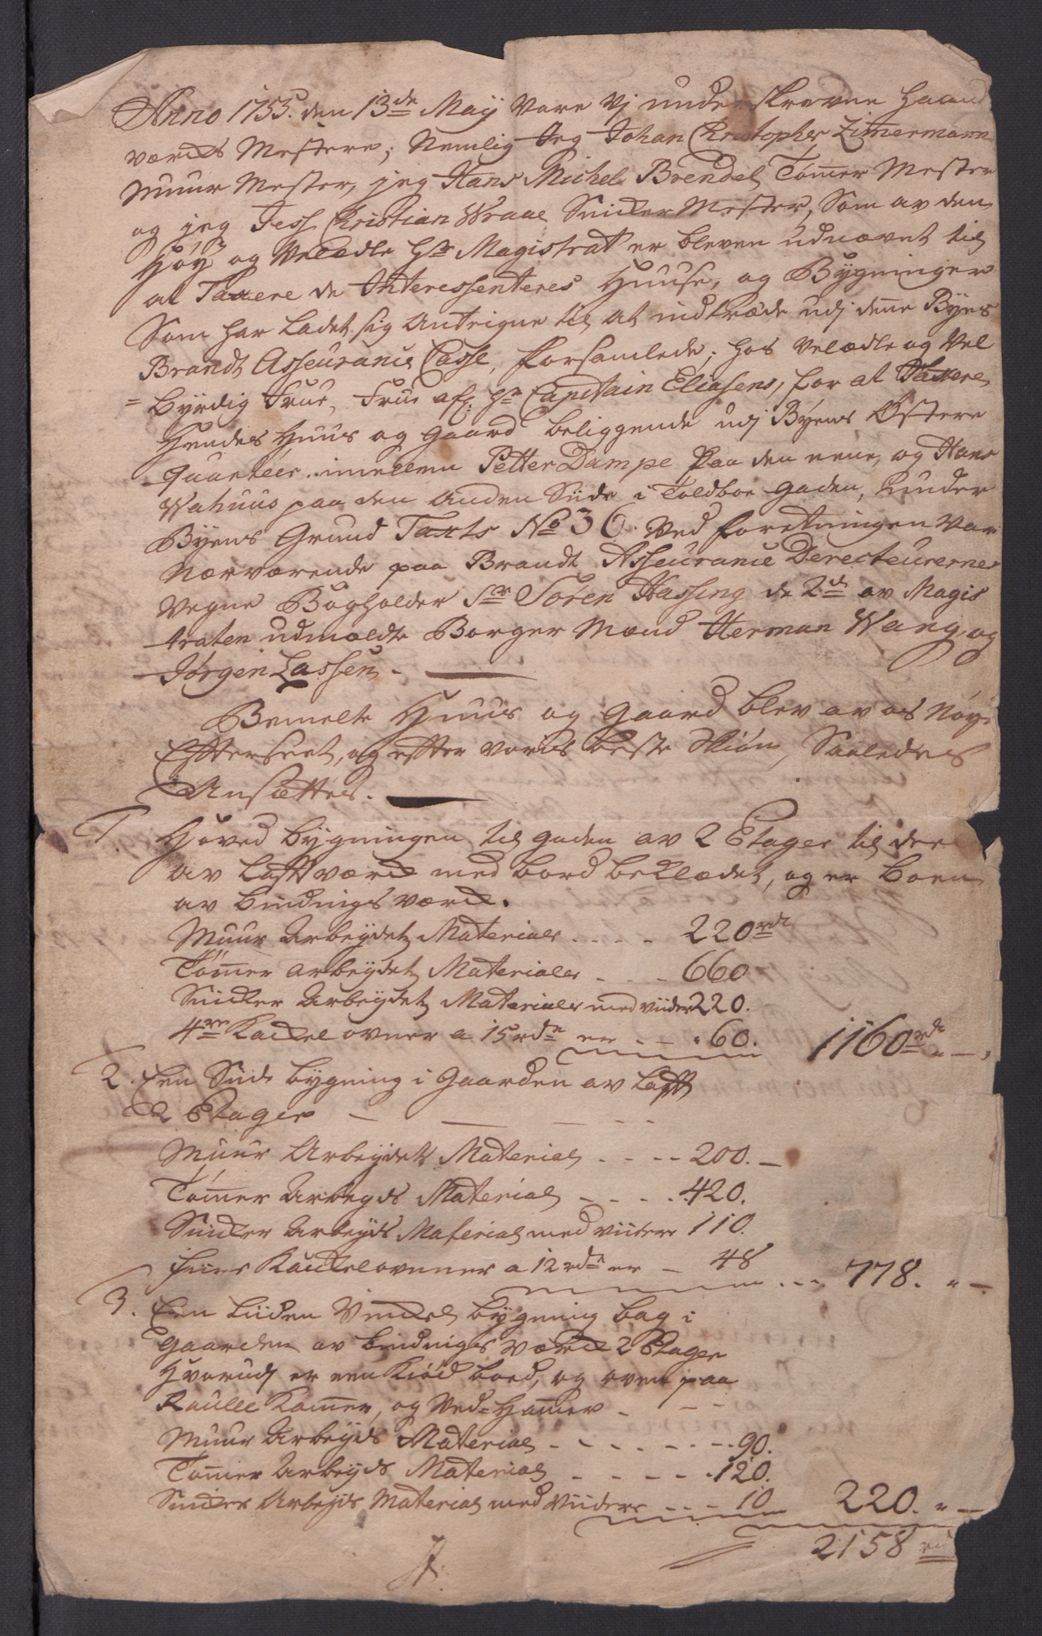 Anno 1755. den 13de Maÿ Vare Vj underskrevne Haand
værcks Mestere; Nemlig Jeg Johan Christopher Zimermann
Muur Mester, jeg Hans Michel Brendel Tømer Mester
og jeg Jess Christian Wraae Snicker Mester, Som av den
Høÿ og Velædle Hr Magistrat er bleven udnævnt til
at Taxere de Interessenteres Huuse, og Bÿgninger
Som har Ladet sig Anteigne til at indtræde udj dene Bÿes
Brandt Asseurance Casse, forsamlede, hos Velædle og Vel
= bÿrdig Frue, Frue afg: Hr Capitain Eliasens, for at Taxere
Hendes Huus og Gaard beliggende udj Bÿens Østere
Quarteer. imellem Petter Dampe paa den eene, og Hans
Wahuus paa den Anden Siide i Toldboe Gaden, under
Bÿens Grund Taxts No 36. Ved foretningen Var
Nærværende paa Brandt Asseurance Derecteurernes
Vegne Bogholder Sr Søren Hassing de 2de av Magis
traten udmældte Borger Mænd Herman Wang, og
Jørgen Lassen. -
Bemelte Huus og Gaard blev av os Nøÿe
Effterseet, og effter vores beste Skiøn, Saaledes
Ansættes. -
1. Hoved bÿgningen til gaden av 2 Etager til deels
av Lafftværck med bord beklædet, og er Boen
av bindings værck.
Muur Arbeÿdet Materialer . . . . 220 rdr
Tømer arbeÿdet Materialer - - 660
Snicker Arbeÿdet Materialer med viider 220.
4re Kackelovner a 15 rdr er - - 60. 1160 rdr „ - „
2. Een Siide bÿgning i Gaarden av Lafft
2 Etager - - - - -
Muur Arbeÿdet Material . . - - 200. -
Tømer Arbeÿds Material - - - . 420.
Snicker Arbeÿds Material med viidere 110.
fiire Kackelovnner a 12 rdr er - 48 - - - 778. „ -
3. Een Liiden Vinckel bÿgning bag i
Gaarden av bindings værck 2 Etager
Hvorudj er een Kiød boed, og oven paa
Rulle Kamer, og Ved-Kamer - - - -
Muur Arbeÿds Material - - - - - - 90.
Tømer Arbeÿds Material - - - - - 120.
Snicker Arbeÿds Material med Viidere - - - 10 220. „ -
2158 rdr